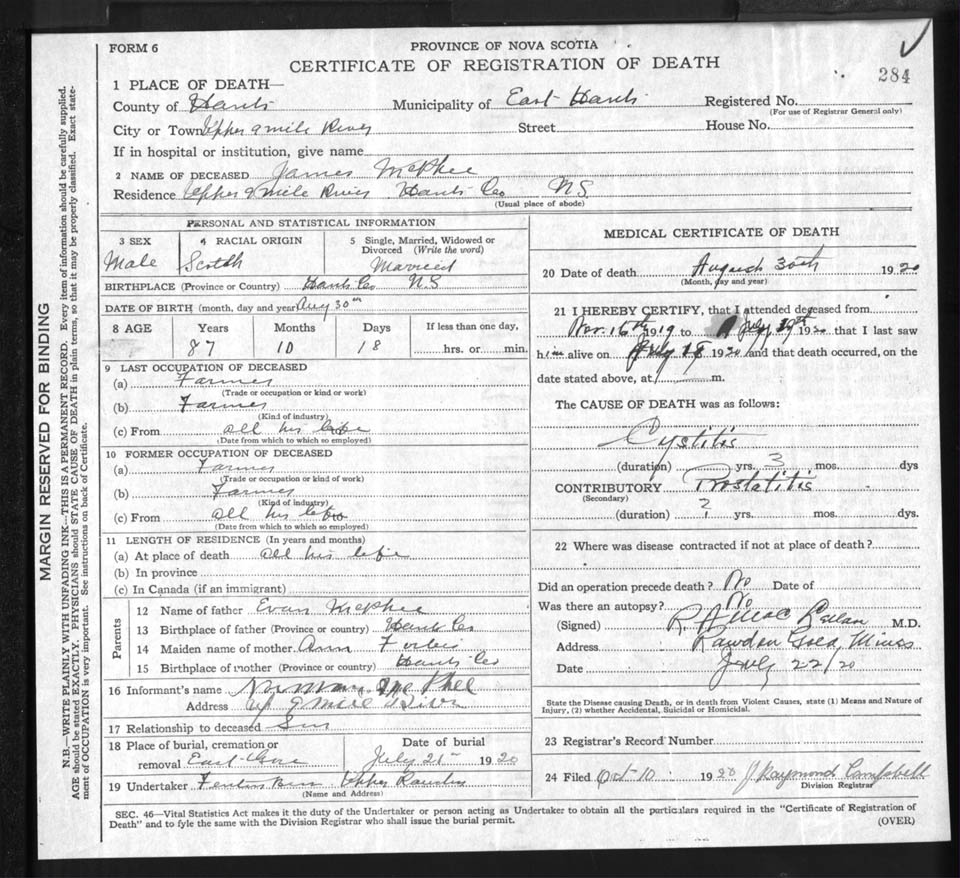 FORM 6
PROVINCE OF NOVA SCOTIA
CERTIFICATE OF REGISTRATION OF DEATH
284
1 PLACE OF DEATH—
County of Hants Municipality of East Hants Registered No.
(For use of Registrar General only)
City or Town Upper 9 mile River Street House No.
If in hospital or institution, give name
2 NAME OF DECEASED James McPhee
Residence Upper 9 Mile River Hants Co N.S.
(Usual place of abode)
PERSONAL AND STATISTICAL INFORMATION
3 SEX 4 RACIAL ORIGIN 5 Single, Married, Widowed or
Divorced (Write the word)
Male Scotch Married
BIRTHPLACE (Province or Country) Hants Co N.S
DATE OF BIRTH (month, day and year) Aug 30th
8 AGE Years Months Days If less than one day,
87 10 18 hrs. or min.
9 LAST OCCUPATION OF DECEASED
(a) Farmer
(Trade or occupation or kind or work)
(b) Farmer
(Kind of industry)
(c) From all his life
(Date from which to which so employed)
10 FORMER OCCUPATION OF DECEASED
(a) Farmer
(Trade or occupation or kind or work)
(b) Farmer
(Kind of industry)
(c) From all his life
(Date from which to which so employed)
11 LENGTH OF RESIDENCE (In years and months)
(a) At place of death all his life
(b) In province
(c) In Canada (if an immigrant)
Parents
12 Name of father Evan McPhee
13 Birthplace of father (Province or country) Hants Co
14 Maiden name of mother Ann Forbes
15 Birthplace of mother (Province or country) Hants Co
16 Informant's name Norman McPhee
Address up 9 Mile River
17 Relationship to deceased Son
18 Place of burial, cremation or Date of burial
removal East July 21st 1920
19 Undertaker Upper Rawdon
(Name and Address)
MEDICAL CERTIFICATE OF DEATH
20 Date of death August 30th 1920
(Month, day and year)
21 I HEREBY CERTIFY, that I attended deceased from
Nov. 16th 1919 to July 1920 that I last saw
him alive on July 18 1920 and that death occurred, on the
date stated above, at m.
The CAUSE OF DEATH was as follows:
Cystitis
(duration) yrs. 3 mos. dys
CONTRIBUTORY Prostatitis
(Secondary)
(duration) ? yrs. mos. dys.
22 Where was disease contracted if not at place of death?
Did an operation precede death? No Date of
Was there an autopsy? No
(Signed) M.D.
Address Rawdon Gold Mines
Date July 22/20
State the Disease causing Death, or in death from Violent Causes, state (1) Means and Nature of
Injury, (2) whether Accidental, Suicidal or Homicidal.
23 Registrar's Record Number
24 Filed Oct-10 1920 J. Raymond Campbell
Division Registrar
SEC. 46—Vital Statistics Act makes it the duty of the Undertaker or person acting as Undertaker to obtain all the particulars required in the "Certificate of Registration of
Death" and to fyle the same with the Division Registrar who shall issue the burial permit.
(OVER)
MARGIN RESERVED FOR BINDING
N.B.—WRITE PLAINLY WITH UNFADING INK—THIS IS A PERMANENT RECORD. Every item of information should be carefully supplied.
AGE should be stated EXACTLY. PHYSICIANS should STATE CAUSE OF DEATH in plain terms, so that it may be properly classified. Exact state-
ment of OCCUPATION is very important. See instructions on back of Certificate.